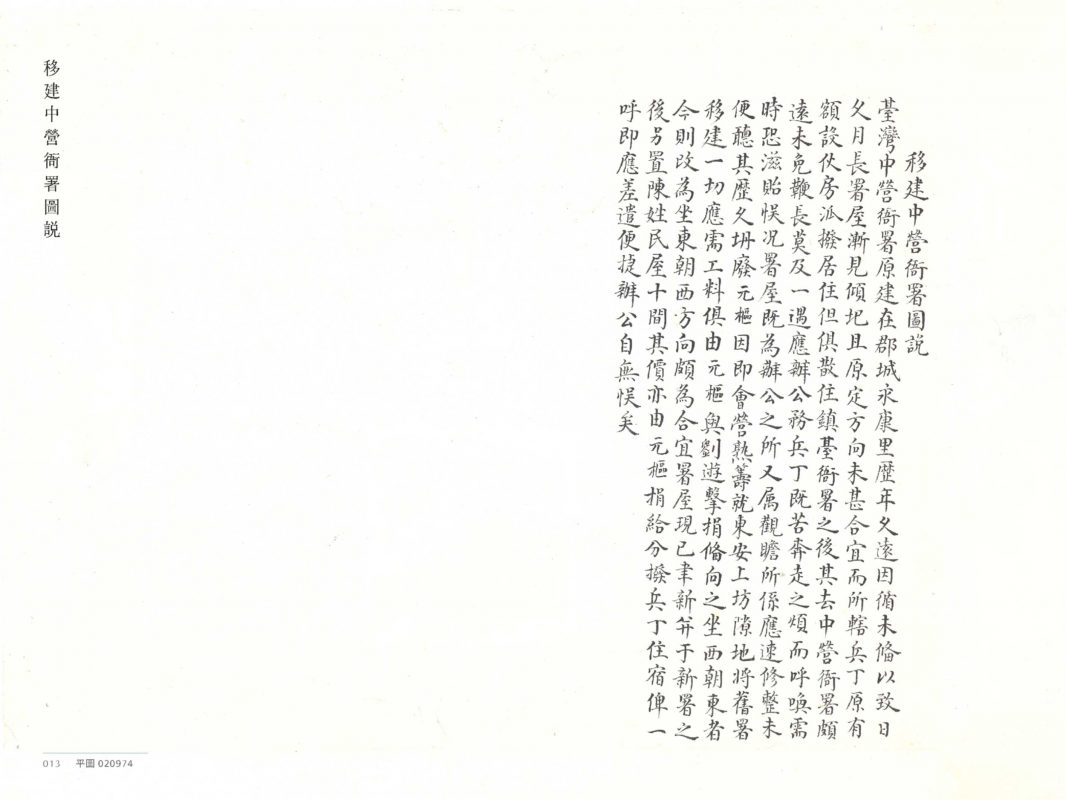 移建中營衙署圖說
臺灣中營衙署原建在郡城永康里歷年久遠因循未脩以致日
久月長署屋漸見傾圮且原定方向未甚合宜而所轄兵丁原有
額設伙房派撥居住但俱散住鎮臺衙署之後其去中營衙署頗
遠未免鞭長莫及一遇應辦公務兵丁既苦奔走之煩而呼喚需
時恐滋貽悞况署屋既為辦公之所又属觀瞻所係應速修整未
便聽其歷久坍廢元樞因即會營熟籌就東安上坊隙地將舊署
移建一切應需工料俱由元樞與劉遊擊捐脩向之坐西朝東者
今則改為坐東朝西方向頗為合宜署屋現已聿新并于新署之
後另置陳姓民屋十間其價亦由元樞捐給分撥兵丁住宿俾一
呼即應差遣便捷辦公自無悞矣
移建中營衙署圖說
013 平圖 020974